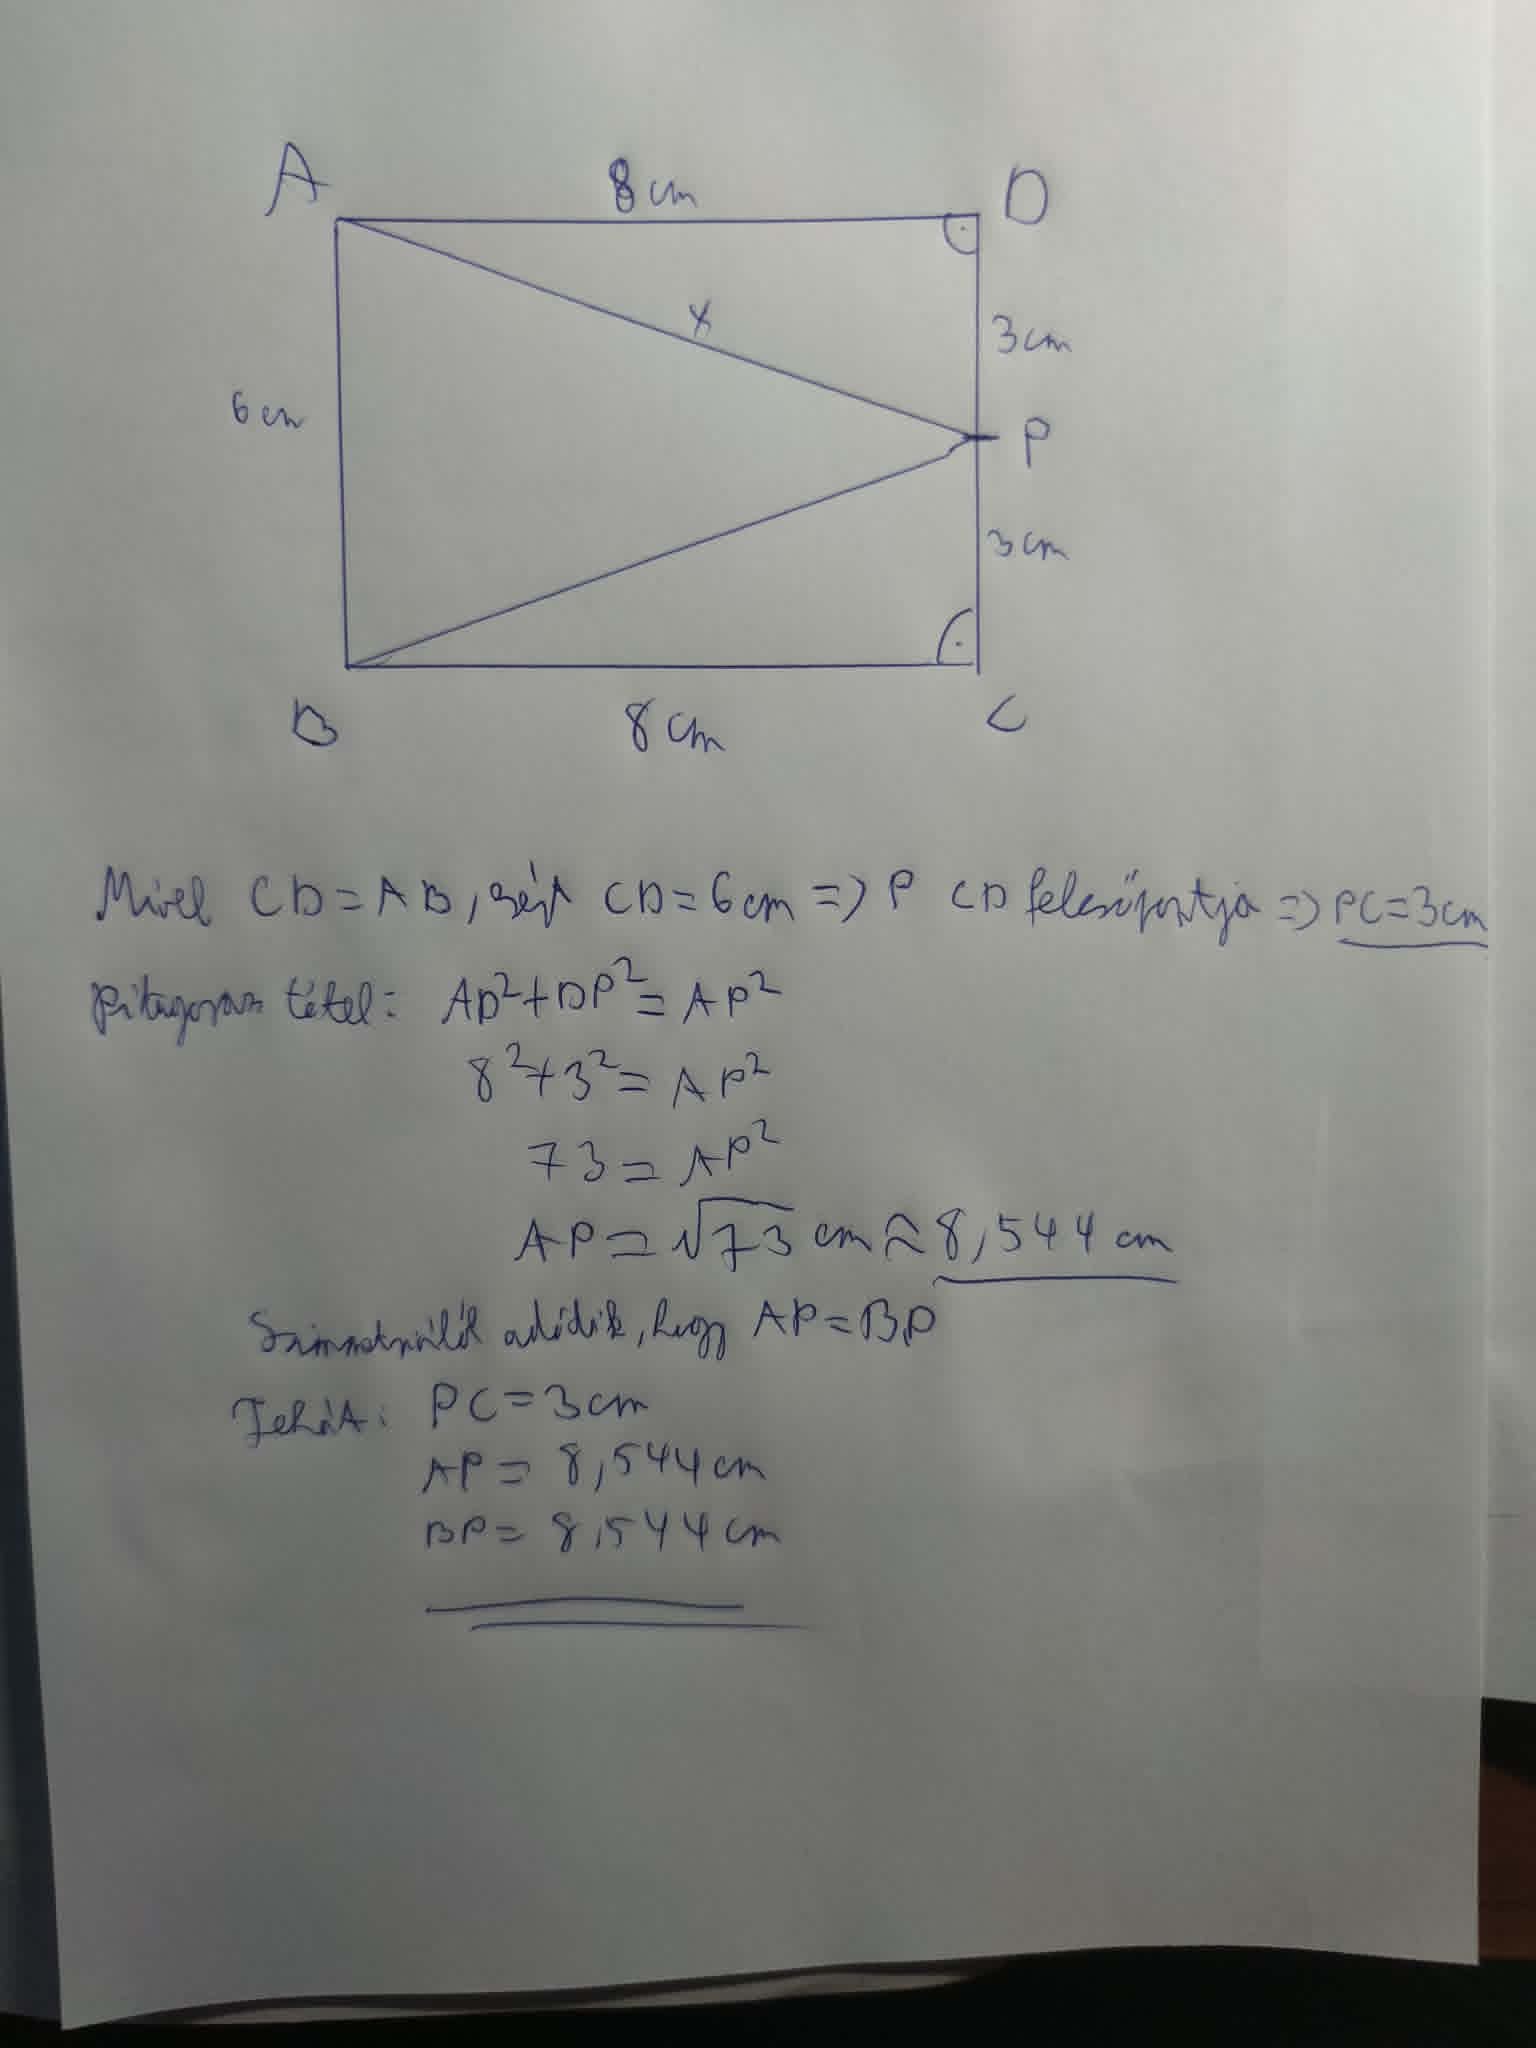 A 8 cm D
x
3 cm
6 cm
P
3 cm
B 8 cm C
Mivel CD = AB, ezért CD = 6 cm => P CD felezőpontja => PC = 3 cm
Pitagorasz tétel: AD²+DP² = AP²
8²+3² = AP²
73 = AP²
AP = √73 cm ≈ 8,544 cm
adódik, hogy AP = BP
Tehát: PC = 3 cm
AP = 8,544 cm
BP = 8,544 cm